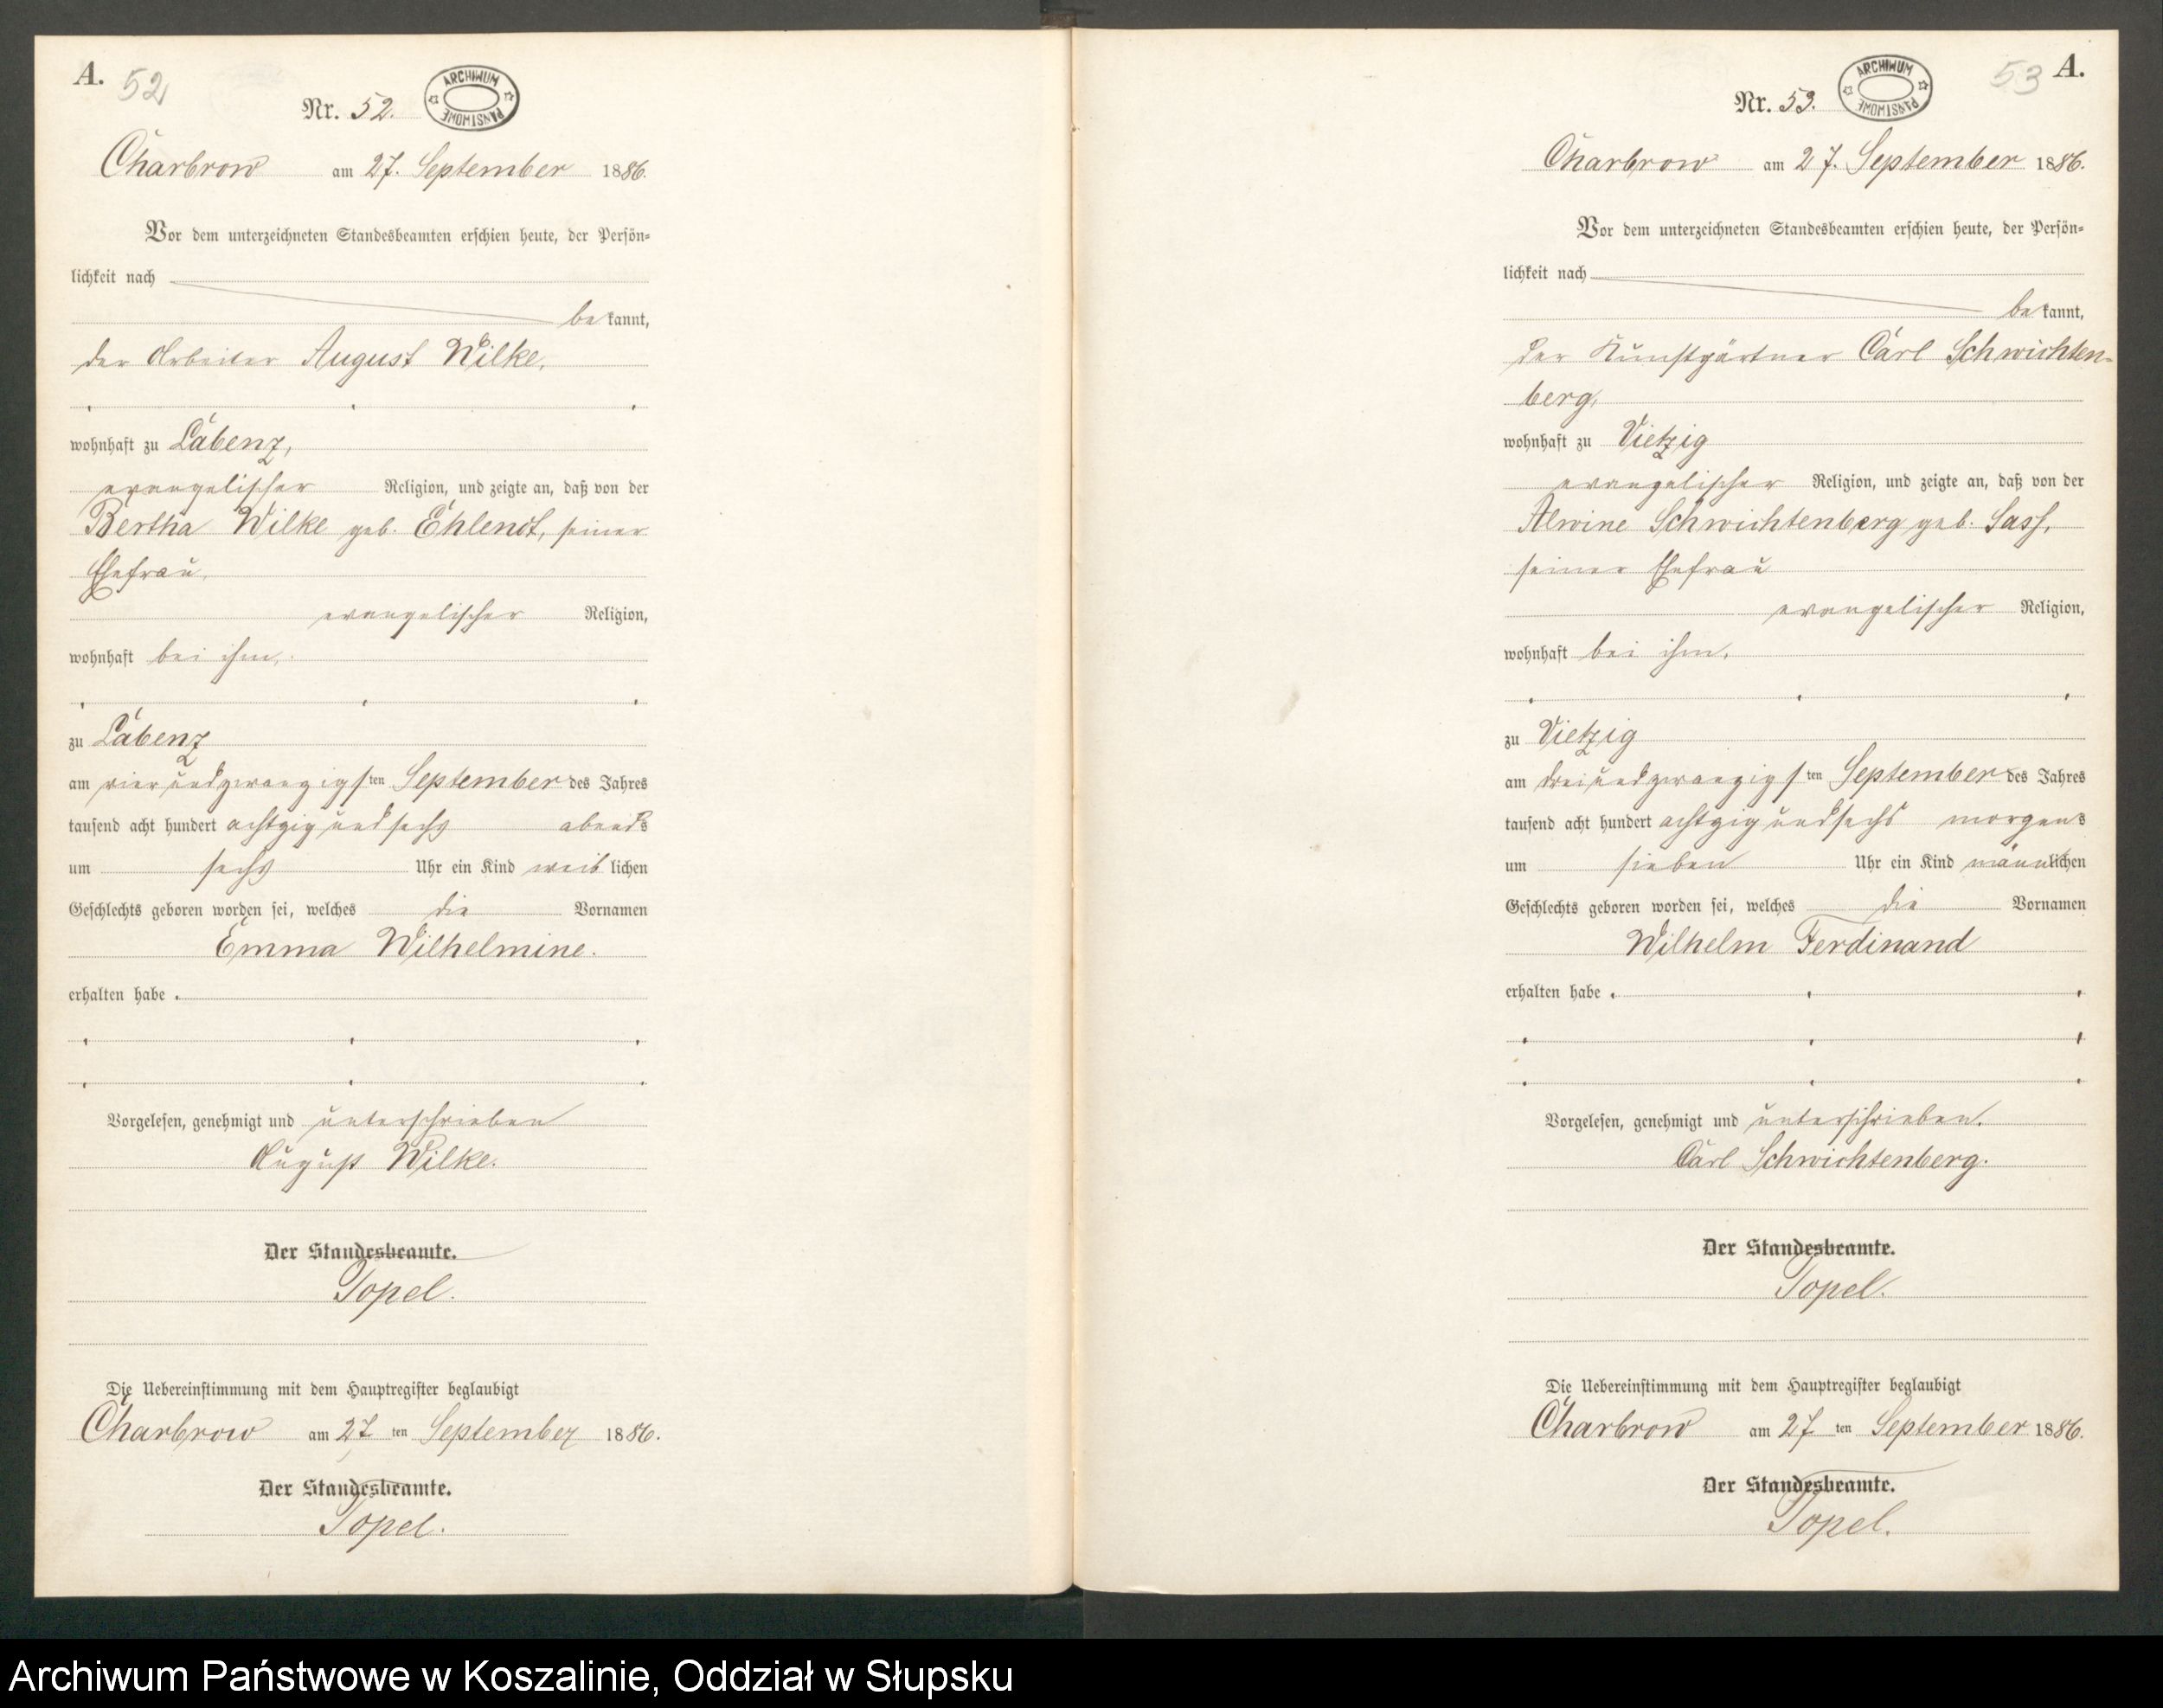 A. 52
ARCHIWUM PAŃSTWOWE
Nr. 52.
Charbrow am 27. September 1886.
Vor dem unterzeichneten Standesbeamten erschien heute, der Persön-
lichkeit nach
bekannt,
der Arbeiter August Wilke,
wohnhaft zu Labenz,
evangelischer Religion, und zeigte an, daß von der
Bertha Wilke geb. Ehlendt, seiner
Ehefrau,
evangelischer Religion,
wohnhaft bei ihm,
zu Labenz
am vierundzwanzigsten September des Jahres
tausend acht hundert achtzig und sechs abends
um sechs Uhr ein Kind weiblichen
Geschlechts geboren worden sei, welches die Vornamen
Emma Wilhelmine.
erhalten habe.
Vorgelesen, genehmigt und unterschrieben
August Wilke.
Der Standesbeamte.
Topel.
Die Uebereinstimmung mit dem Hauptregister beglaubigt
Charbrow am 27 ten September 1886.
Der Standesbeamte.
Topel.
53 A.
ARCHIWUM PAŃSTWOWE
Nr. 53.
Charbrow am 27. September 1886.
Vor dem unterzeichneten Standesbeamten erschien heute, der Persön-
lichkeit nach
bekannt,
der Kunstgärtner Carl Schwichten-
berg,
wohnhaft zu Vietzig
evangelischer Religion, und zeigte an, daß von der
Alwine Schwichtenberg geb. Sass,
seiner Ehefrau
evangelischer Religion,
wohnhaft bei ihm,
zu Vietzig
am dreiundzwanzigsten September des Jahres
tausend acht hundert achtzig und sechs morgens
um sieben Uhr ein Kind männlichen
Geschlechts geboren worden sei, welches die Vornamen
Wilhelm Ferdinand
erhalten habe.
Vorgelesen, genehmigt und unterschrieben.
Carl Schwichtenberg.
Der Standesbeamte.
Topel.
Die Uebereinstimmung mit dem Hauptregister beglaubigt
Charbrow am 27 ten September 1886.
Der Standesbeamte.
Topel.
Archiwum Państwowe w Koszalinie, Oddział w Słupsku